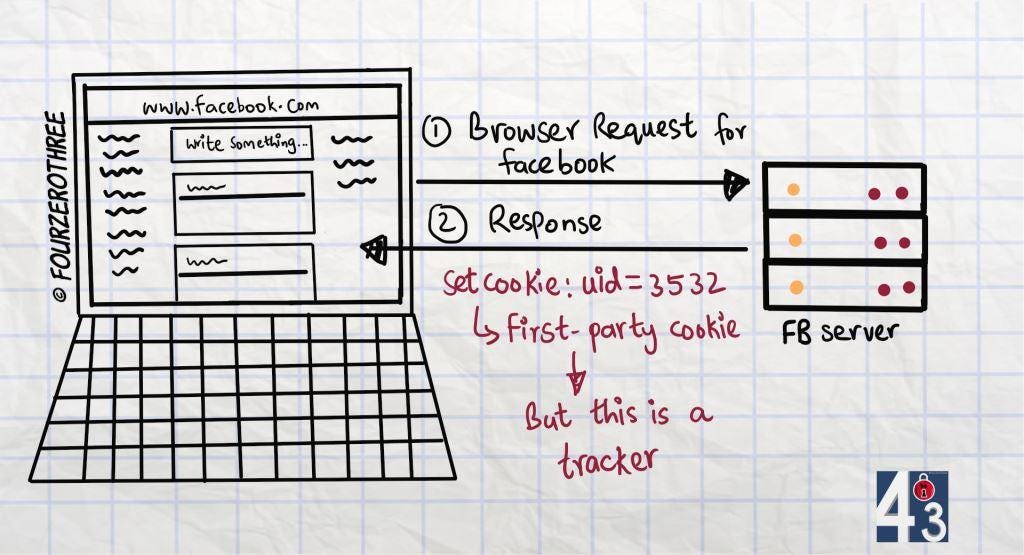 © FOURZEROTHREE
www.facebook.com
Write Something...
① Browser Request for
facebook
② Response
Set cookie: uid=3532
↳ First-party cookie
But this is a
tracker
FB server
403